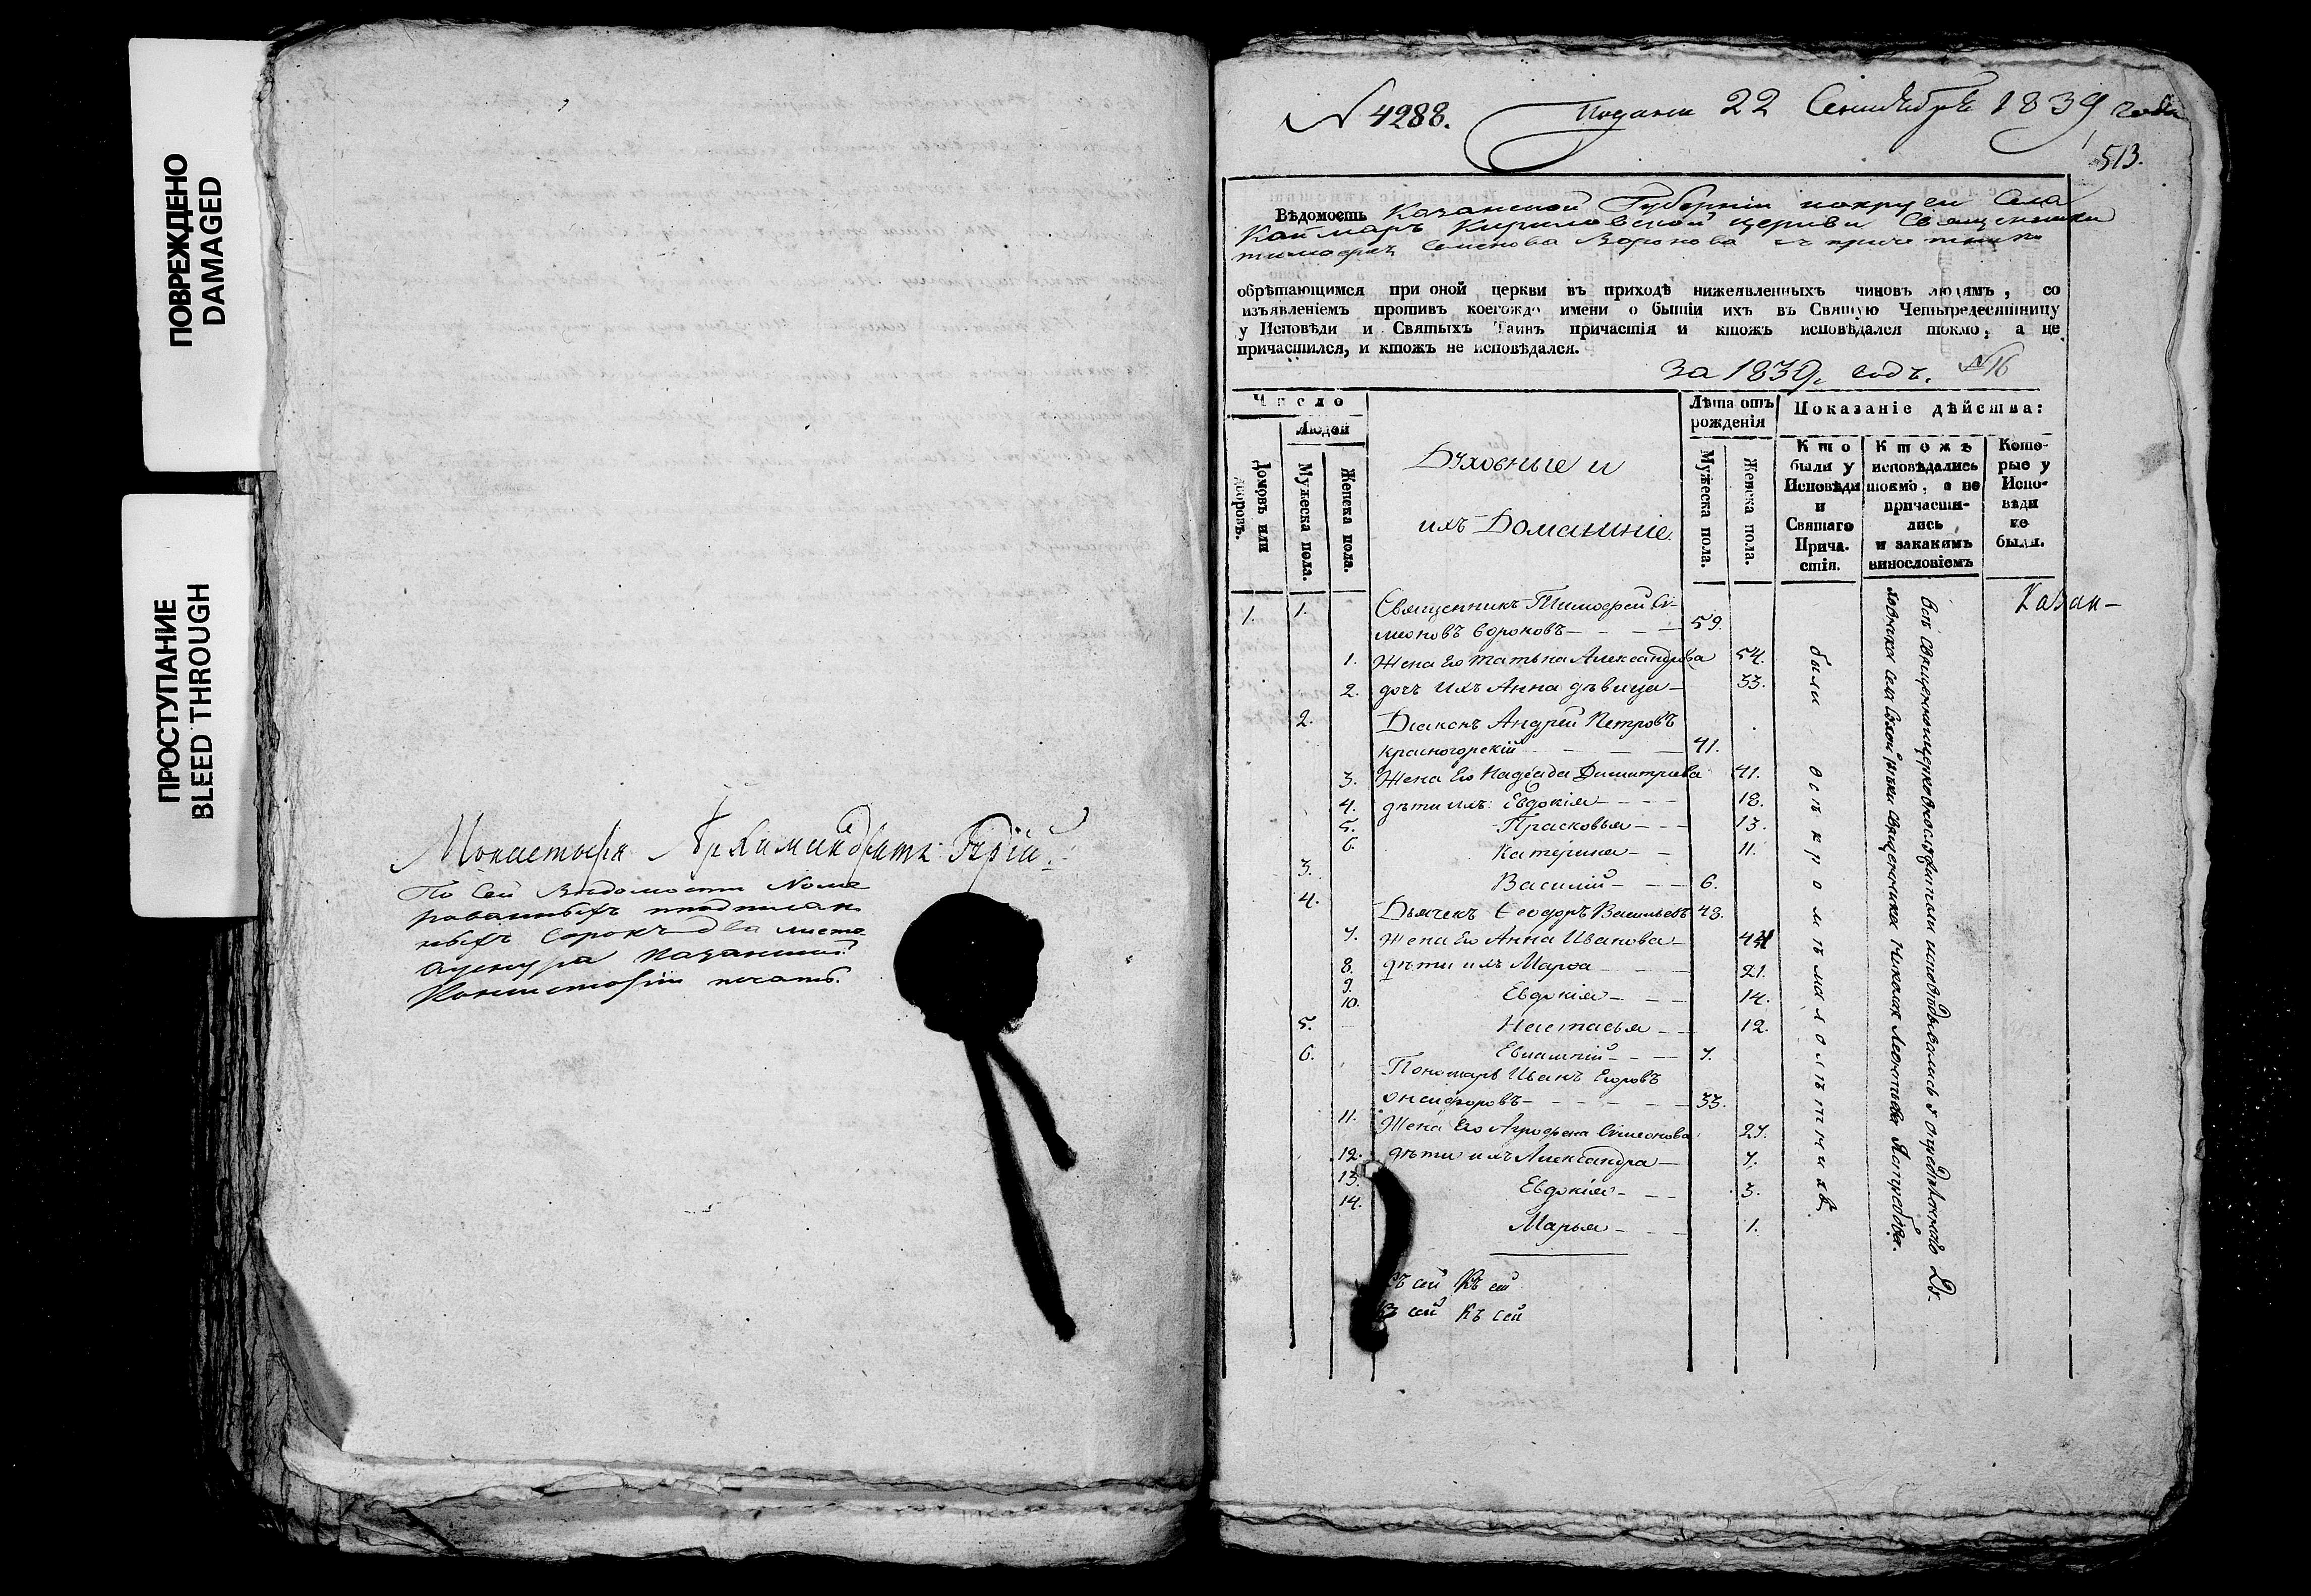 ПОВРЕЖДЕНО
DAMAGED
ПРОСТУПАНИЕ
BLEED THROUGH
Монастыря Архимандритъ
По сей Ведомости Номе
рованныхъ
ныхъ Сорокъ два листа
Казанской
Консисторіи печать.
N 4288. Подана 22 Сентебря 1839 года
513.
Вѣдомость Казанской Губерніи округи Села
Каймаръ Кириловской церкви Священника
тимофея Семенова Воронова съ
обрѣтающимся при оной церкви въ приходѣ нижеявленныхъ чиновъ людямъ, со
изъявленіемъ противъ коегождо имени о бытіи ихъ въ Святую Четыредесятницу
у Исповѣди и Святыхъ Таинъ причастія и ктожъ исповѣдался токмо, а не
причастился, и ктожъ не исповѣдался.
за 1839. годъ. N 16
Число
Людей
Домовъ или дворовъ.
Мужеска пола.
Женска пола.
Духовные и
ихъ Домашніе.
Лѣта отъ
рожденія
Мужеска пола.
Женска пола.
Показаніе дѣйства:
Кто
были у
Исповѣди
и
Святаго
Прича-
стія.
Ктожъ
исповѣдались
токмо, а не
причасти-
лись
и закакимъ
винословіемъ
Кото-
рые у
Испо-
вѣди
не
были.
1. 1. Священникъ Тимофей Си-
меоновъ Вороновъ 59.
1. Жена Его татьяна Александрова 54.
2. дочь ихъ Анна дѣвица 33.
2. Діаконъ Андрей Петровъ
красногорскій 41.
3. Жена Его Надежда Димитріева 41.
4. дѣти ихъ: Евдокія 18.
5. Прасковья 13.
6. Катерина 11.
3. Василій 6.
4. Дьячекъ Ѳеодоръ Васильевъ 48.
7. Жена Его Анна Иванова
8. дѣти ихъ Марѳа 21.
9. Евдокія 14.
10. Настасья 12.
5. Евлампій 7.
6. Пономарь Иванъ Егоровъ
онисифоровъ 33.
11. Жена Его Агрофена Симеонова 27.
12. дѣти ихъ Александра 7.
13. Евдокія 3.
14. Марья 1.
были всѣ кромѣ малолѣтнихъ
Всѣ Священноцерковнослужители исповѣдывались у опредѣленнаго Ду-
ховника села священника Николая Леонтьева
Казан-
Къ сей Къ сей
Къ сей Къ сей